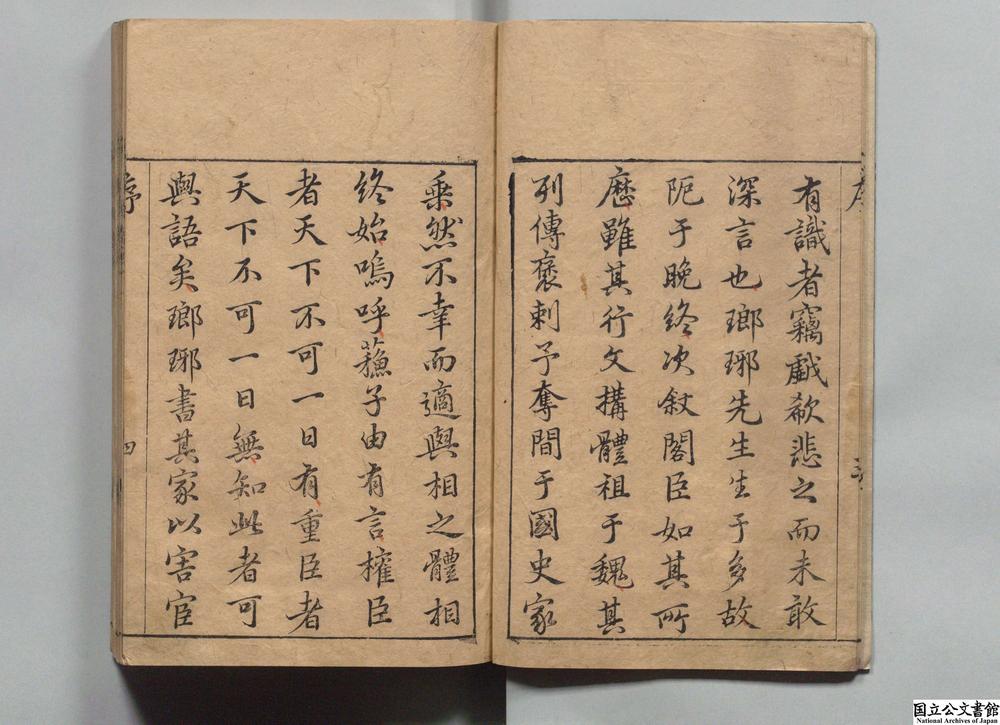 有識者竊戱欷悲之而未敢
深言也瑯琊先生生于多故
阨于晚終次敘閣臣如其所
歷雖其行文搆體祖于魏其
列傳褒刺予奪間于國史家
乗然不幸而適與相之體相
終始嗚呼蘓子由有言權臣
者天下不可一日有重臣者
天下不可一日無知此者可
與語矣瑯琊書其家以害宦
序
四
国立公文書館
National Archives of Japan